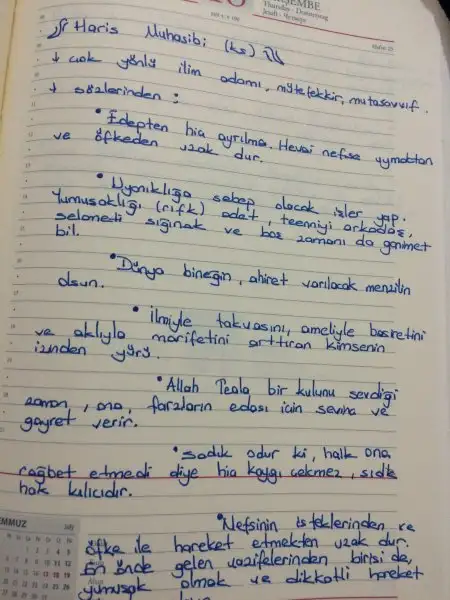 EMBE
Thursday · Donnerstag
Jeudi · Четверг
Hafta: 27
Haris Muhasibi (ks)
↓ çok yönlü ilim adamı, mütefekkir, mutasavvıf.
↓ sözlerinden :
• Edepten hiç ayrılma. Hevai nefse uymaktan
ve öfkeden uzak dur.
• Uyanıklığa sebep olacak işler yap.
Yumuşaklığı (rıfk) adat, teenniyi arkadaş,
selameti sığınak ve boş zamanı da ganimet
bil.
• Dünya bineğin, ahiret varılacak menzilin
olsun.
• ilmiyle takvasını, ameliyle basretini
ve aklıyla marifetini arttıran kimsenin
izinden yürü.
• Allah Teala bir kulunu sevdiği
zaman, ona, farzların edası için sevha ve
gayret verir.
• Sadık odur ki, halk ona
rağbet etmedi diye hiç kaygı çekmez, sıdk
hak kılıcıdır.
• Nefsinin isteklerinden ve
öfke ile hareket etmekten uzak dur.
En önde gelen vazifelerinden birisi de,
yumuşak olmak ve dikkatli hareket
EMMUZ
July